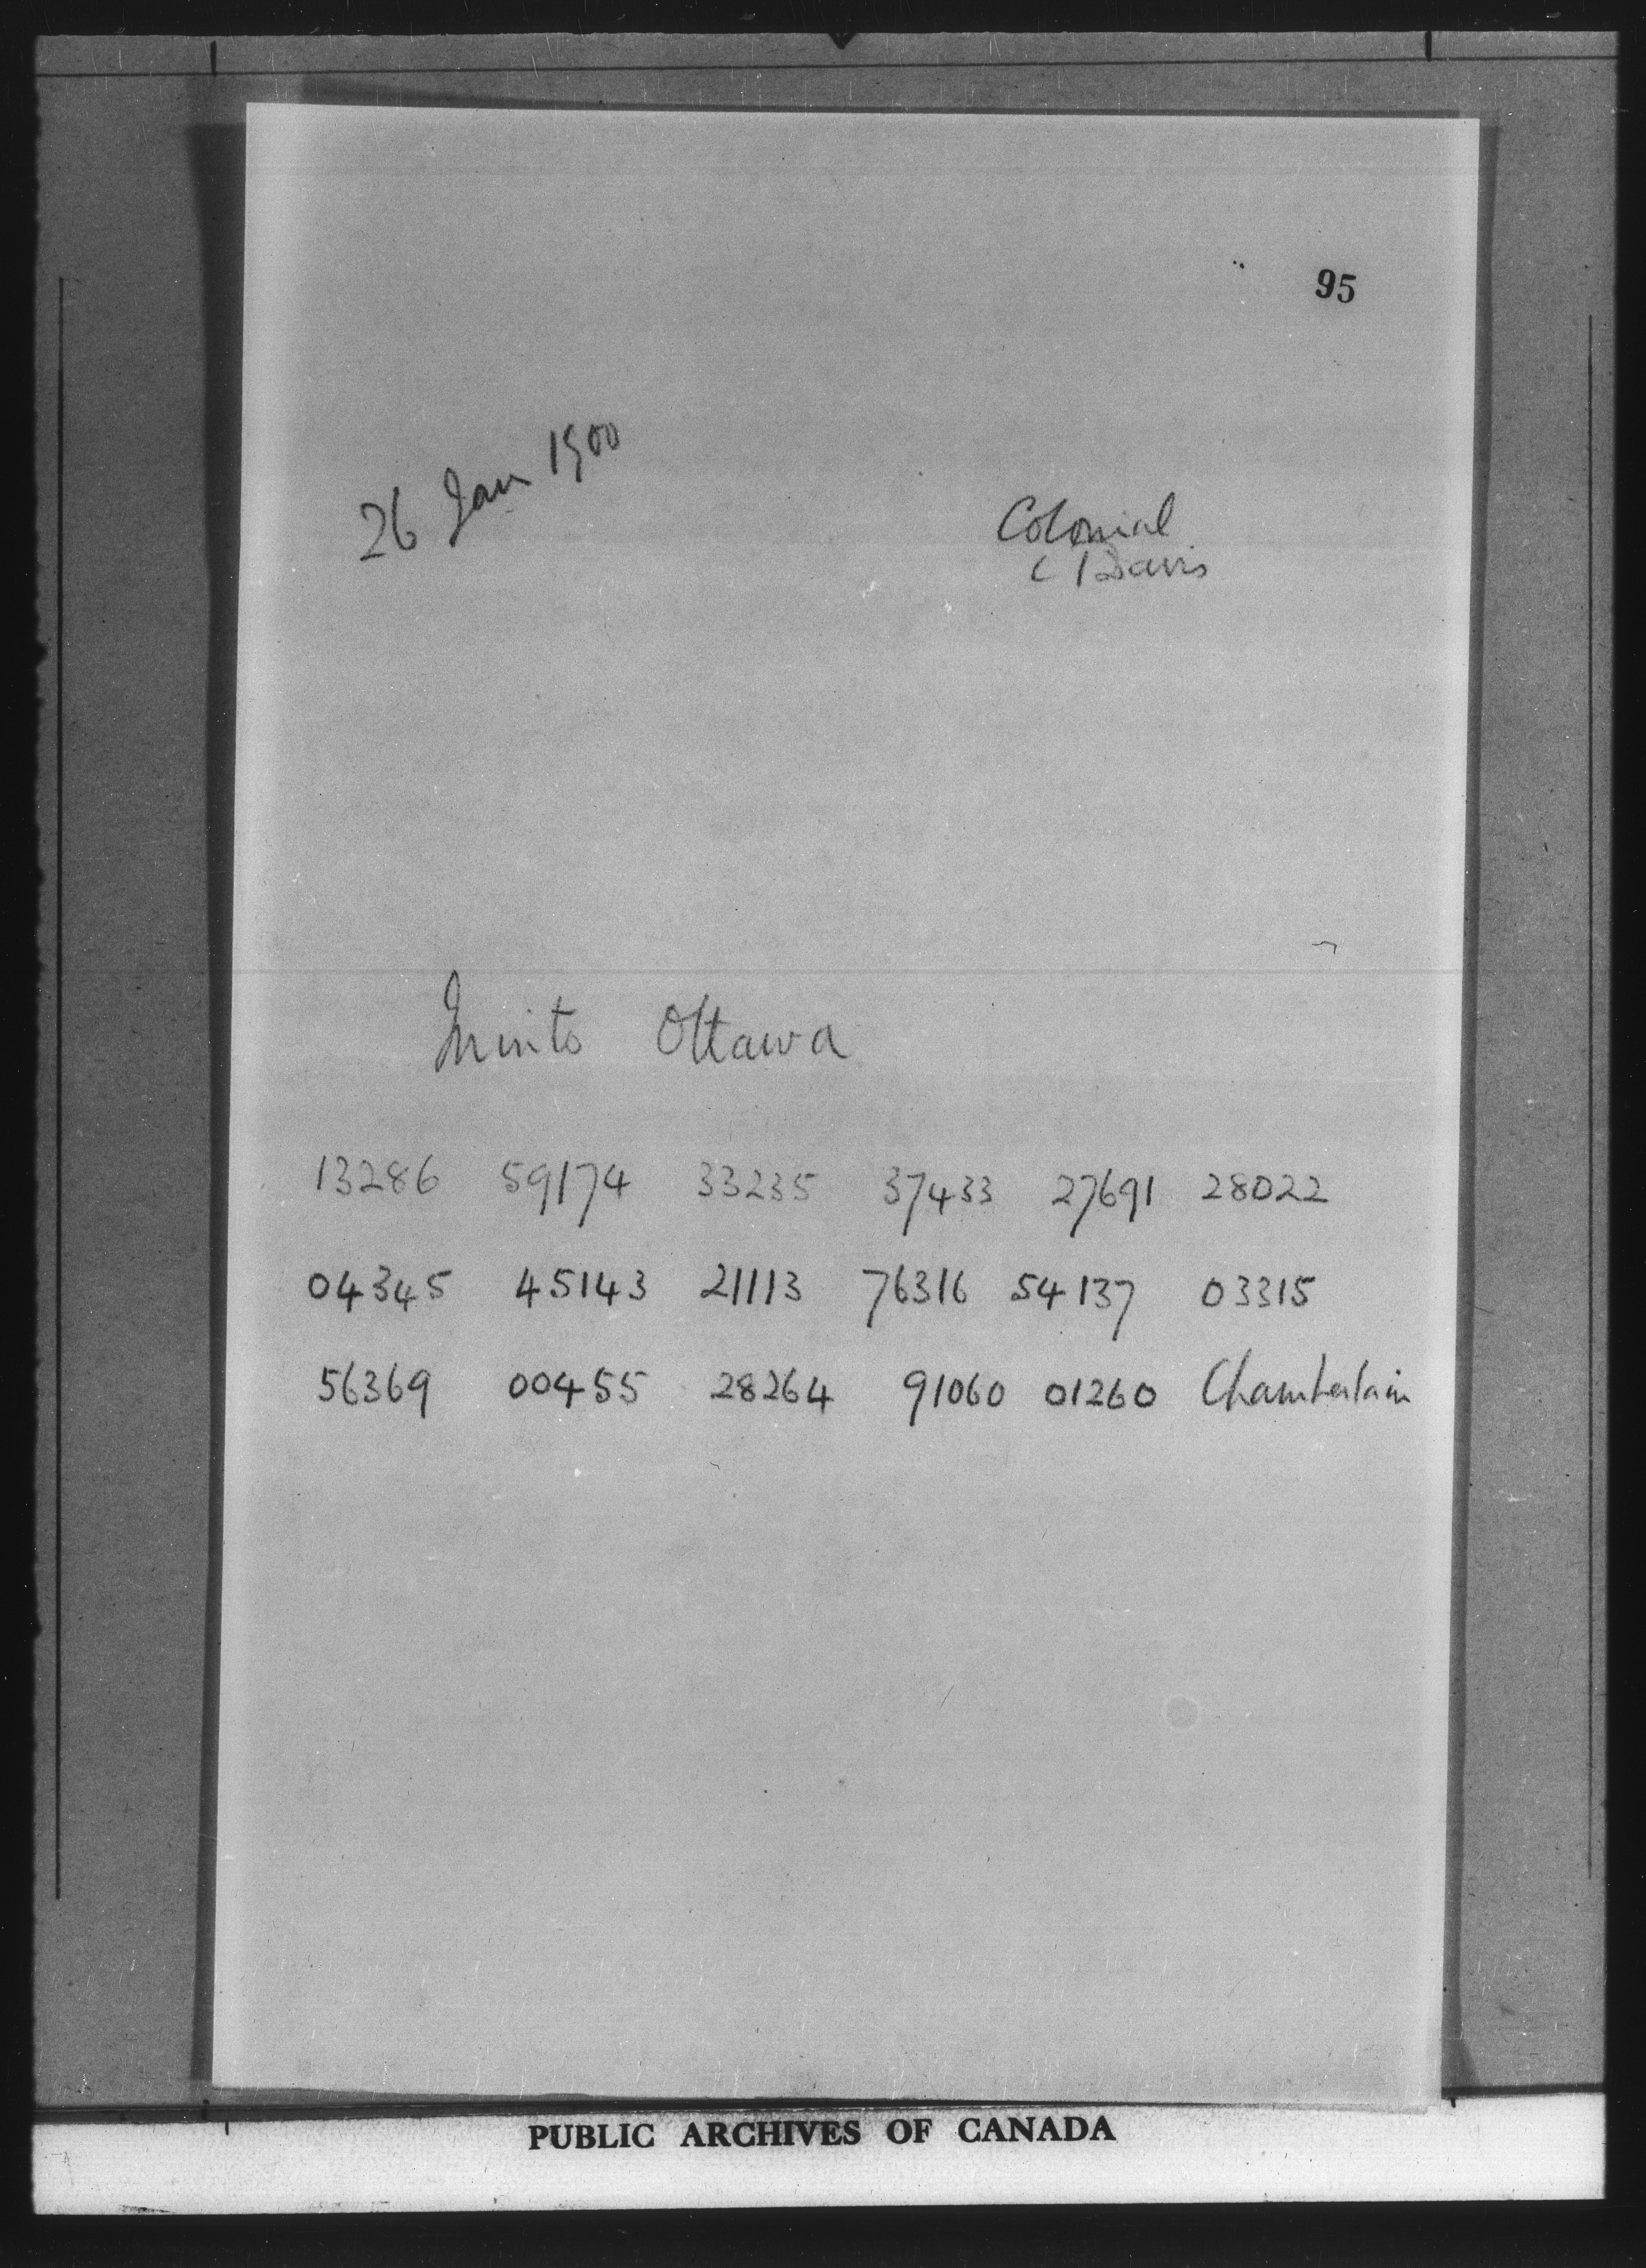 95
26 Jan 1900
Colonial
C Davis
Minto Ottawa
13286 59174 33235 37433 27691 28022
04345 45143 21113 76316 54137 03315
56369 00455 28264 91060 01260 Chamberlain
PUBLIC ARCHIVES OF CANADA